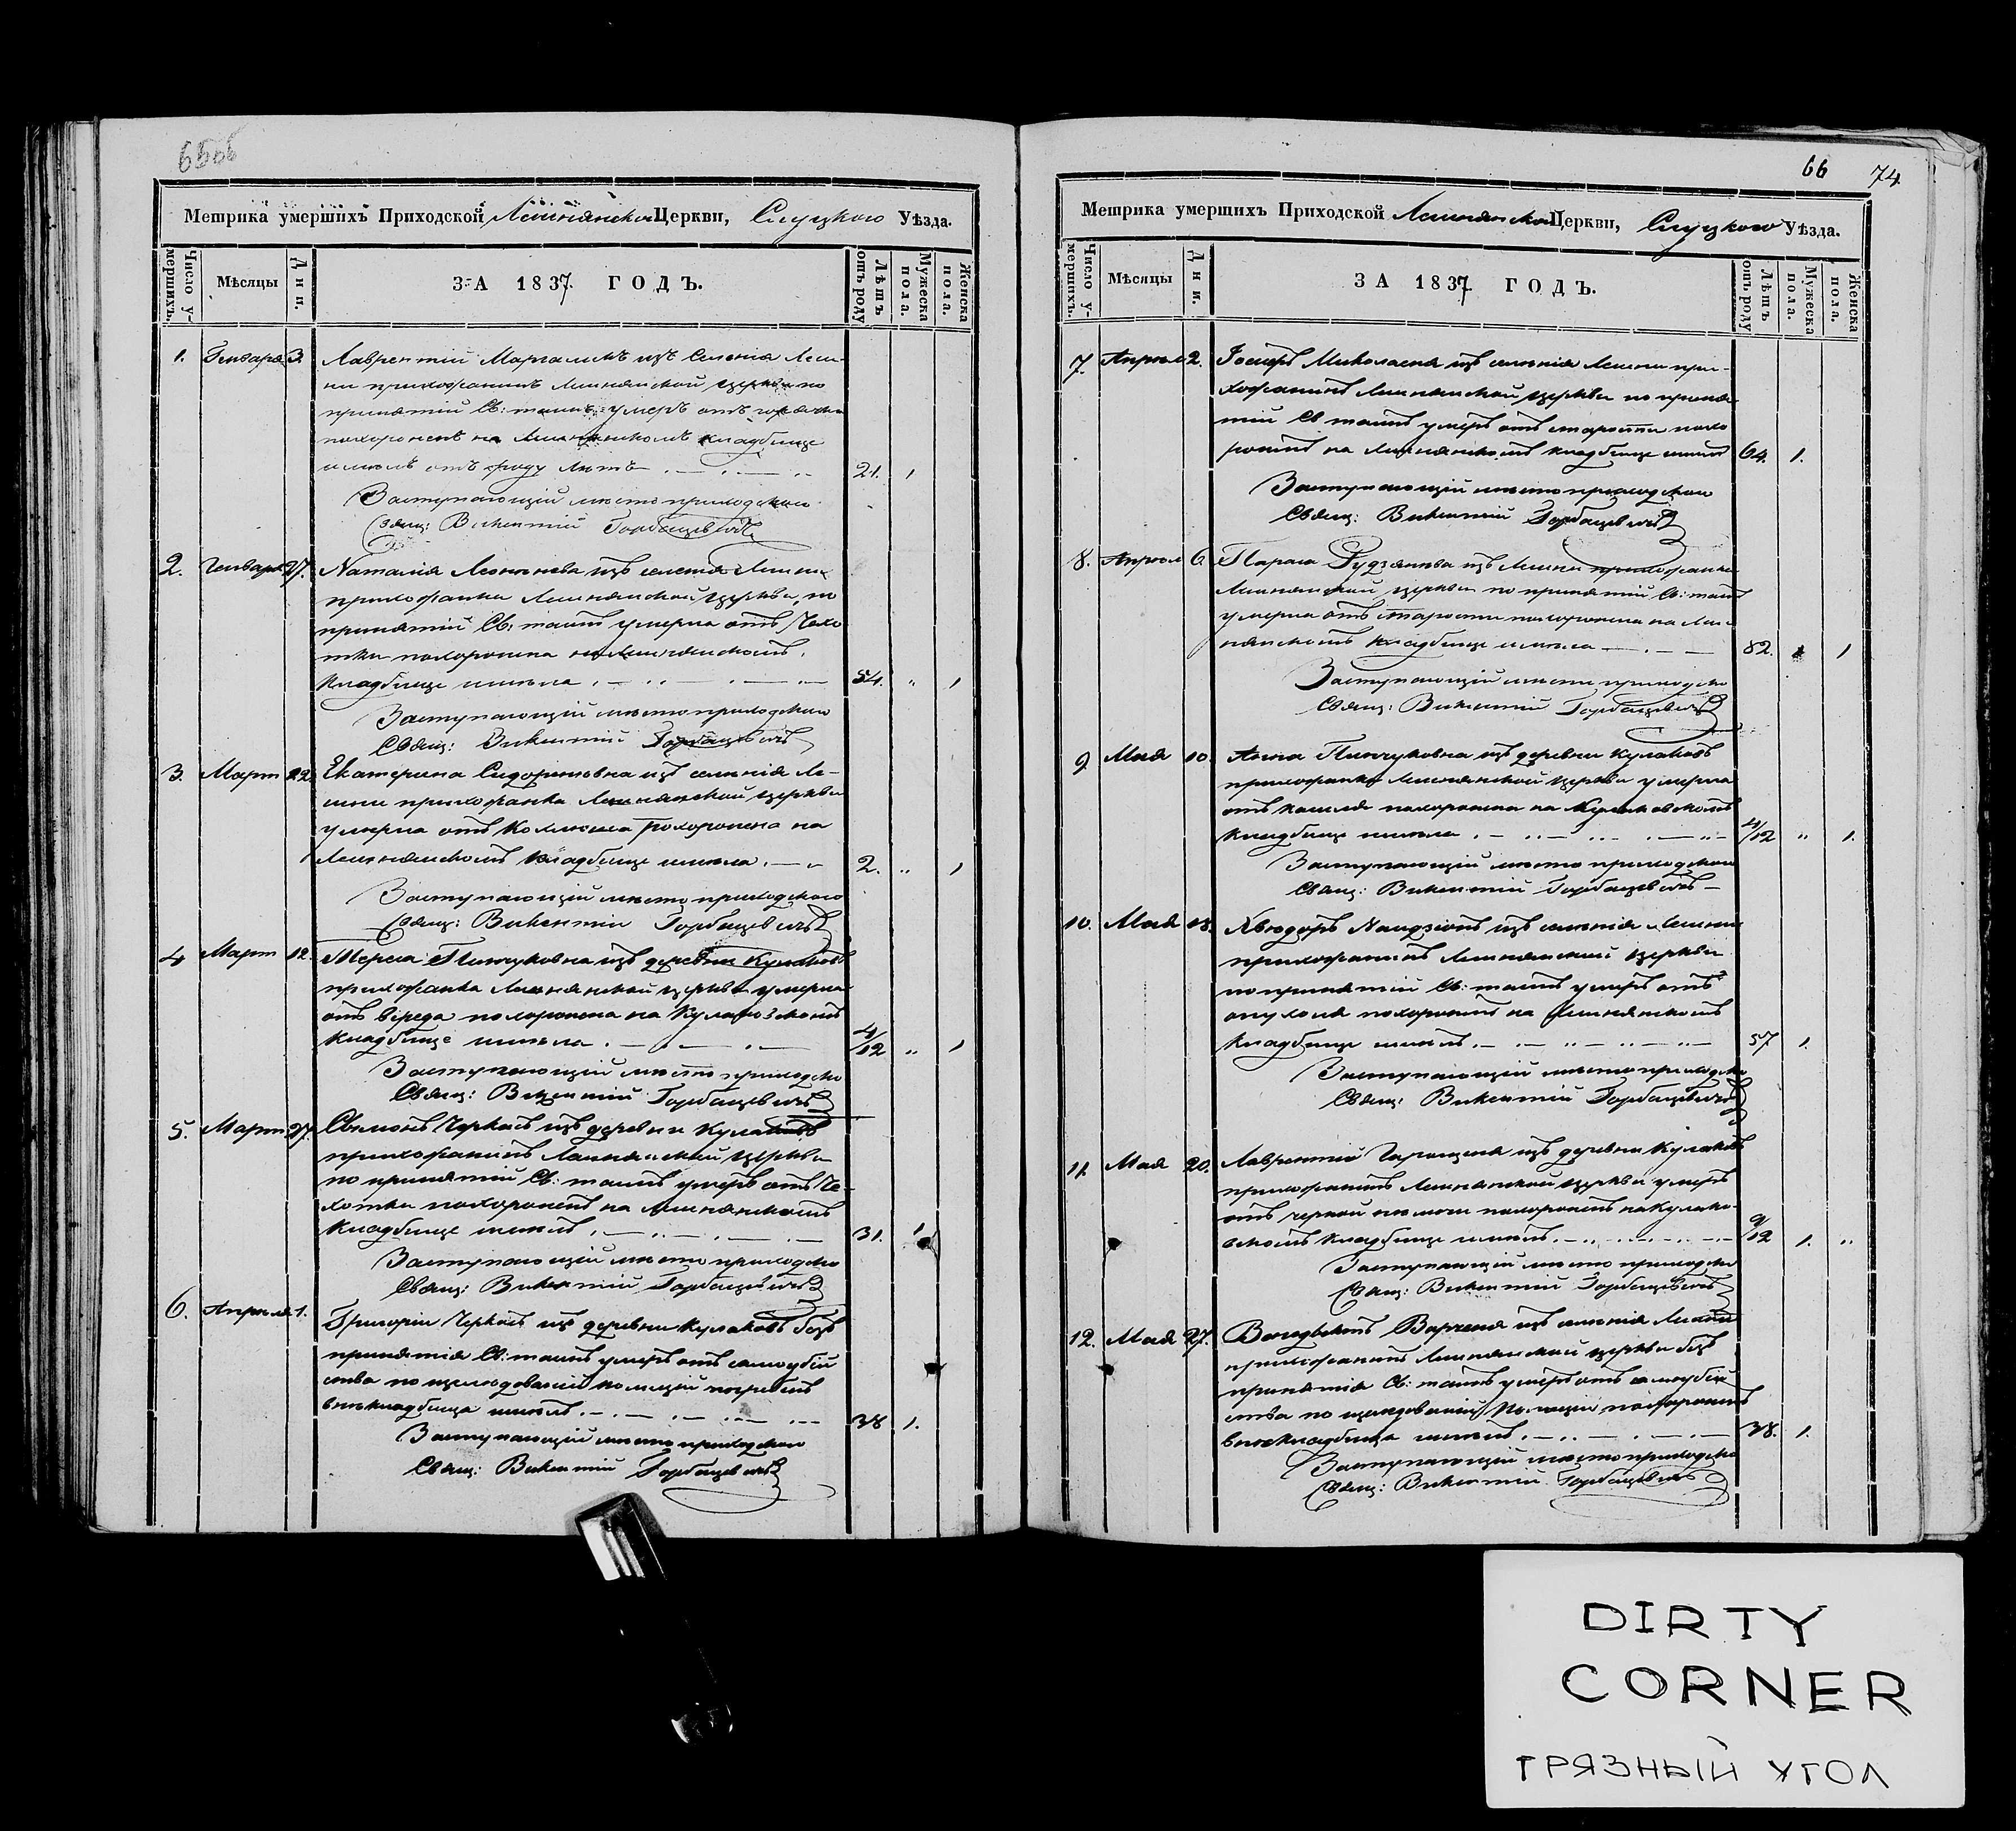 65об
Метрика умершихъ Приходской Лешнянской Церкви, Слуцкого Уѣзда.
Число умершихъ.
Мѣсяцы
Дни.
ЗА 1837 ГОДЪ.
Лѣтъ отъ роду
Мужеска пола.
Женска пола.
1. Генваря 3. Лаврентій изъ селенія Леш-
ни прихожанинъ Лешнянской церкви по
принятіи Св: таинъ умеръ отъ горячки
похороненъ на Лешнянскомъ кладбище
имѣлъ отъ роду лѣтъ 21. 1
Заступающій мѣсто приходского
Свящ: Викентій Горбацевичъ
2. Генваря 27. Наталія изъ селенія Лешни
прихожанка Лешнянской церкви по
принятіи Св: таинъ умерла отъ Чахо
тки похоронена на Лешнянскомъ
кладбище имѣла 54. " 1
Заступающій мѣсто приходского
Свящ: Викентій Горбацевичъ
3. Март 22. Екатерина Сидориковна изъ селенія Ле-
шни прихожанка Лешнянской церкви
умерла отъ похоронена на
Лешнянскомъ кладбище имѣла 2. " 1
Заступающій мѣсто приходского
Свящ: Викентій Горбацевичъ
4 Март 12. Тереса Пинчуковна изъ деревни Кулаковъ
прихожанка Лешнянской церкви умерла
отъ вереда похоронена на
кладбище имѣла 4/12 " 1
Заступающій мѣсто приходско
Свящ: Викентій Горбацевичъ
5. Март 27. Сымонъ Черкасъ изъ деревни Кулаковъ
прихожанинъ Лешнянской церкви
по принятіи Св: таинъ умеръ отъ Ча-
хотки похороненъ на Лешнянскомъ
кладбище имѣлъ 31. 1
Заступающій мѣсто приходско
Свящ: Викентій Горбацевичъ
6. Апреля 1. Григорій Черкасъ изъ деревни Кулаковъ безъ
принятія Св: таинъ умеръ отъ самоубій
ства по изслѣдованіи полиціи погребенъ
внѣ кладбища имѣлъ 38 1.
Заступающій мѣсто приходского
Свящ: Викентій Горбацевичъ
66 74
Метрика умершихъ Приходской Лешнянской Церкви, Слуцкого Уѣзда.
Число умершихъ.
Мѣсяцы
Дни.
ЗА 1837 ГОДЪ.
Лѣтъ отъ роду
Мужеска пола.
Женска пола.
7. Апреля 2. Іосифъ Миколаеня изъ селенія Лешни при-
хожанинъ Лешнянской церкви по приня
тіи Св таинъ умеръ отъ старости похо
роненъ на Лешнянскомъ кладбище имѣлъ 64. 1.
Заступающій мѣсто приходского
Свящ: Викентій Горбацевичъ
8. Апреля 6. Параса изъ Лешни прихожанка
Лешнянской церкви по принятіи Св: таинъ
умерла отъ старости похоронена на Леш
нянскомъ кладбище имѣла 82. 1
Заступающій мѣсто приходско
Свящ: Викентій Горбацевичъ
9. Мая 10. Анна Пинчуковна изъ деревни Кулаковъ
прихожанка Лешнянской церкви умерла
отъ кашля похоронена на Кулаковскомъ
кладбище имѣла 4/12 " 1.
Заступающій мѣсто приходского
Свящ: Викентій Горбацевичъ
10. Мая 18. изъ селенія Лешни
прихожанинъ Лешнянской церкви
по принятіи Св: таинъ умеръ отъ
опухоля похороненъ на Лешнянскомъ
кладбище имѣлъ 57 1.
Заступающій мѣсто приходско
Свящ: Викентій Горбацевичъ
11. Мая 20. Лаврентій изъ деревни Кулаковъ
прихожанинъ Лешнянской церкви умеръ
отъ черной немочи похороненъ на Кулако-
вскомъ кладбище имѣлъ 9/12 1. "
Заступающій мѣсто приходско
Свящ: Викентій Горбацевичъ
12. Мая 27. изъ селенія Лешни
прихожанинъ Лешнянской церкви безъ
принятія Св: таинъ умеръ отъ самоубій
ства по изслѣдованіи полиціи похороненъ
внѣ кладбища имѣлъ 38. 1.
Заступающій мѣсто приходско
Свящ: Викентій Горбацевичъ
DIRTY
CORNER
ГРЯЗНЫЙ УГОЛ